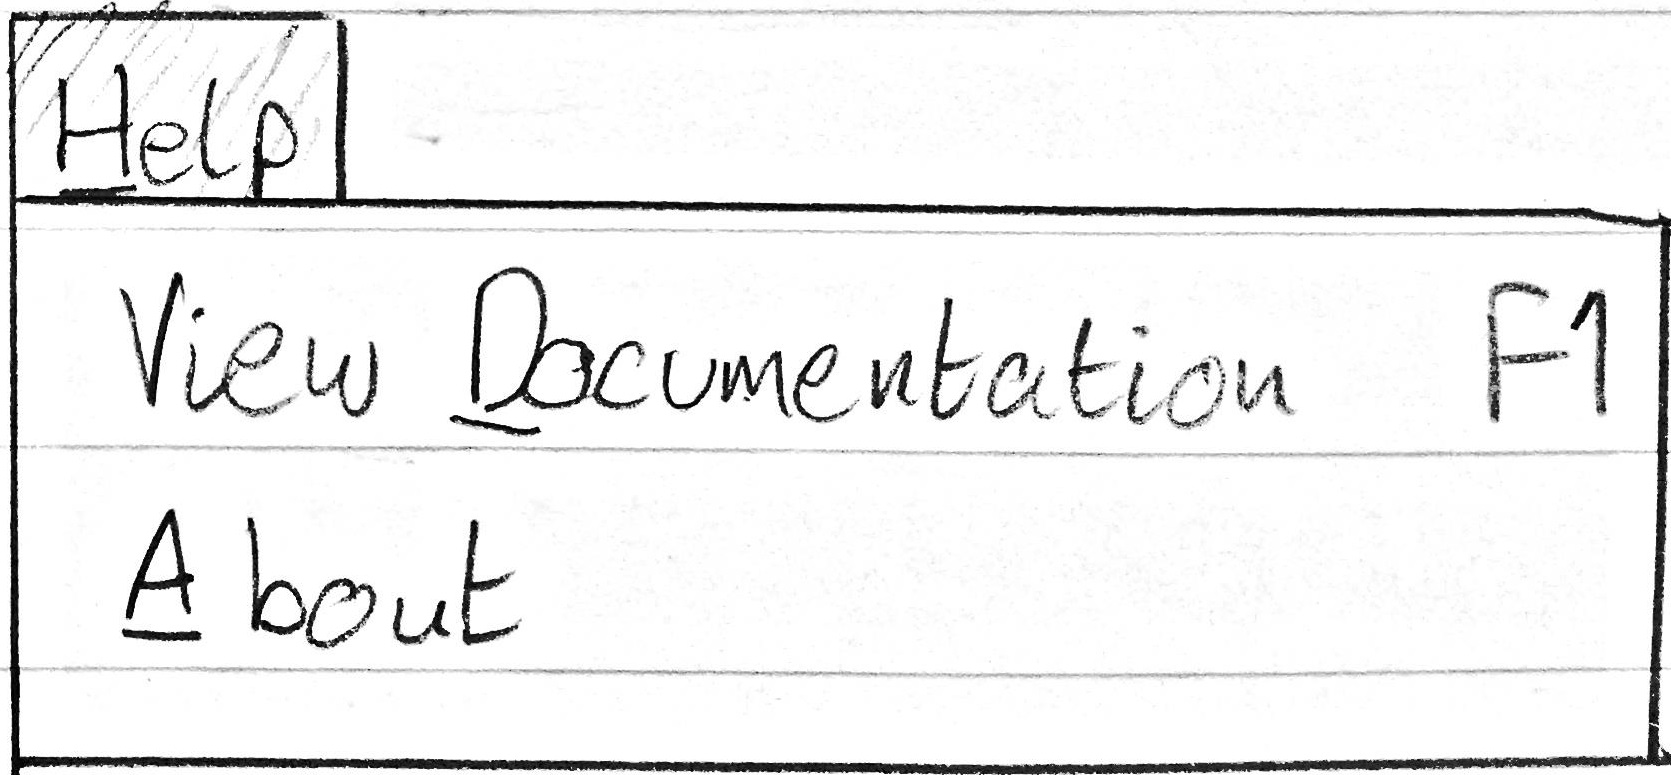 Help
View Documentation F1
About